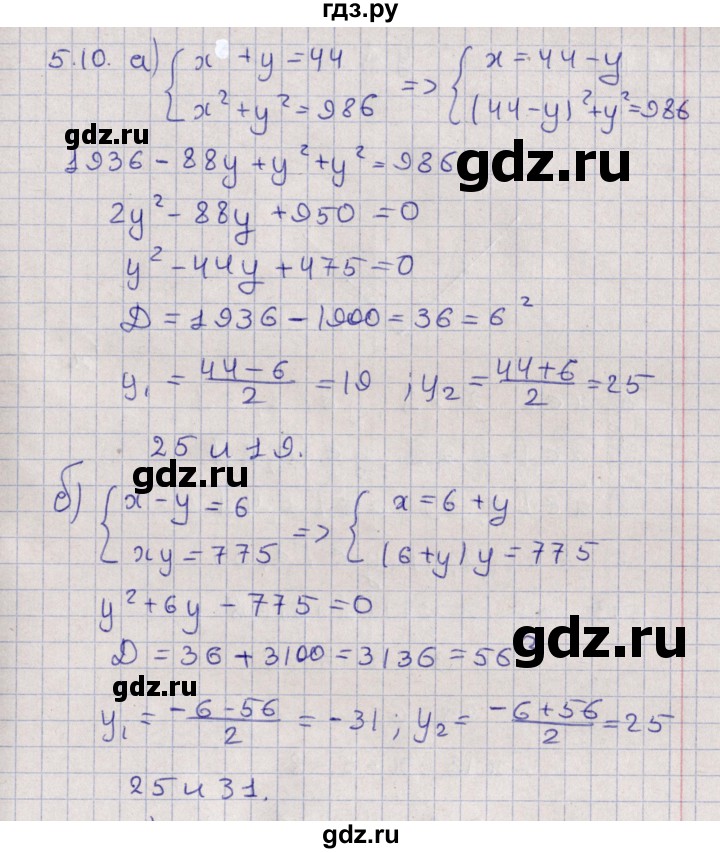 гдз.ру
5.10. а) { x + y = 44
x² + y² = 986 => { x = 44 - y
(44 - y)² + y² = 986
gdz.ru
1936 - 88y + y² + y² = 986
gdz.ru
2y² - 88y + 950 = 0
y² - 44y + 475 = 0
Д = 1936 - 1900 = 36 = 6²
y₁ = (44 - 6)/2 = 19 ; y₂ = (44 + 6)/2 = 25
25 и 19.
gdz.ru
б) { x - y = 6
xy = 775 => { x = 6 + y
(6 + y) y = 775
y² + 6y - 775 = 0
gdz.ru
Д = 36 + 3100 = 3136 = 56²
gdz.ru
y₁ = (-6 - 56)/2 = -31 ; y₂ = (-6 + 56)/2 = 25
25 и 31.
gdz.ru